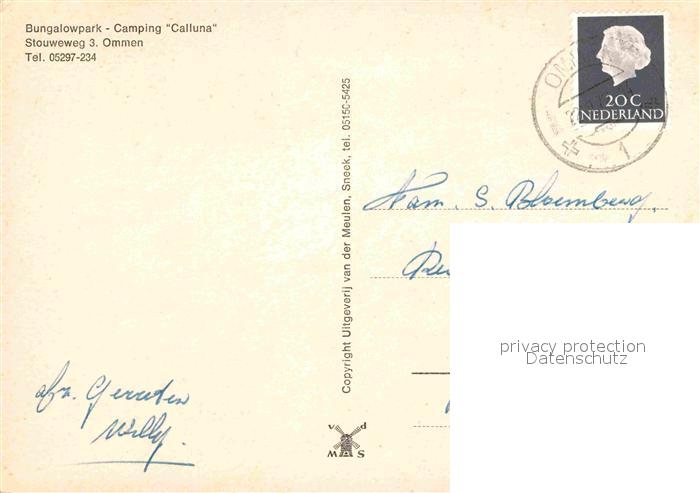 Bungalowpark - Camping "Calluna"
Stouweweg 3. Ommen
Tel. 05297-234
20 C
NEDERLAND
OM
1
Copyright Uitgeverij van der Meulen, Sneek, tel. 05150-5425
Fam. S. Bloemberg.
privacy protection
Datenschutz
afz. Gerreten
Willy.
v d
M S